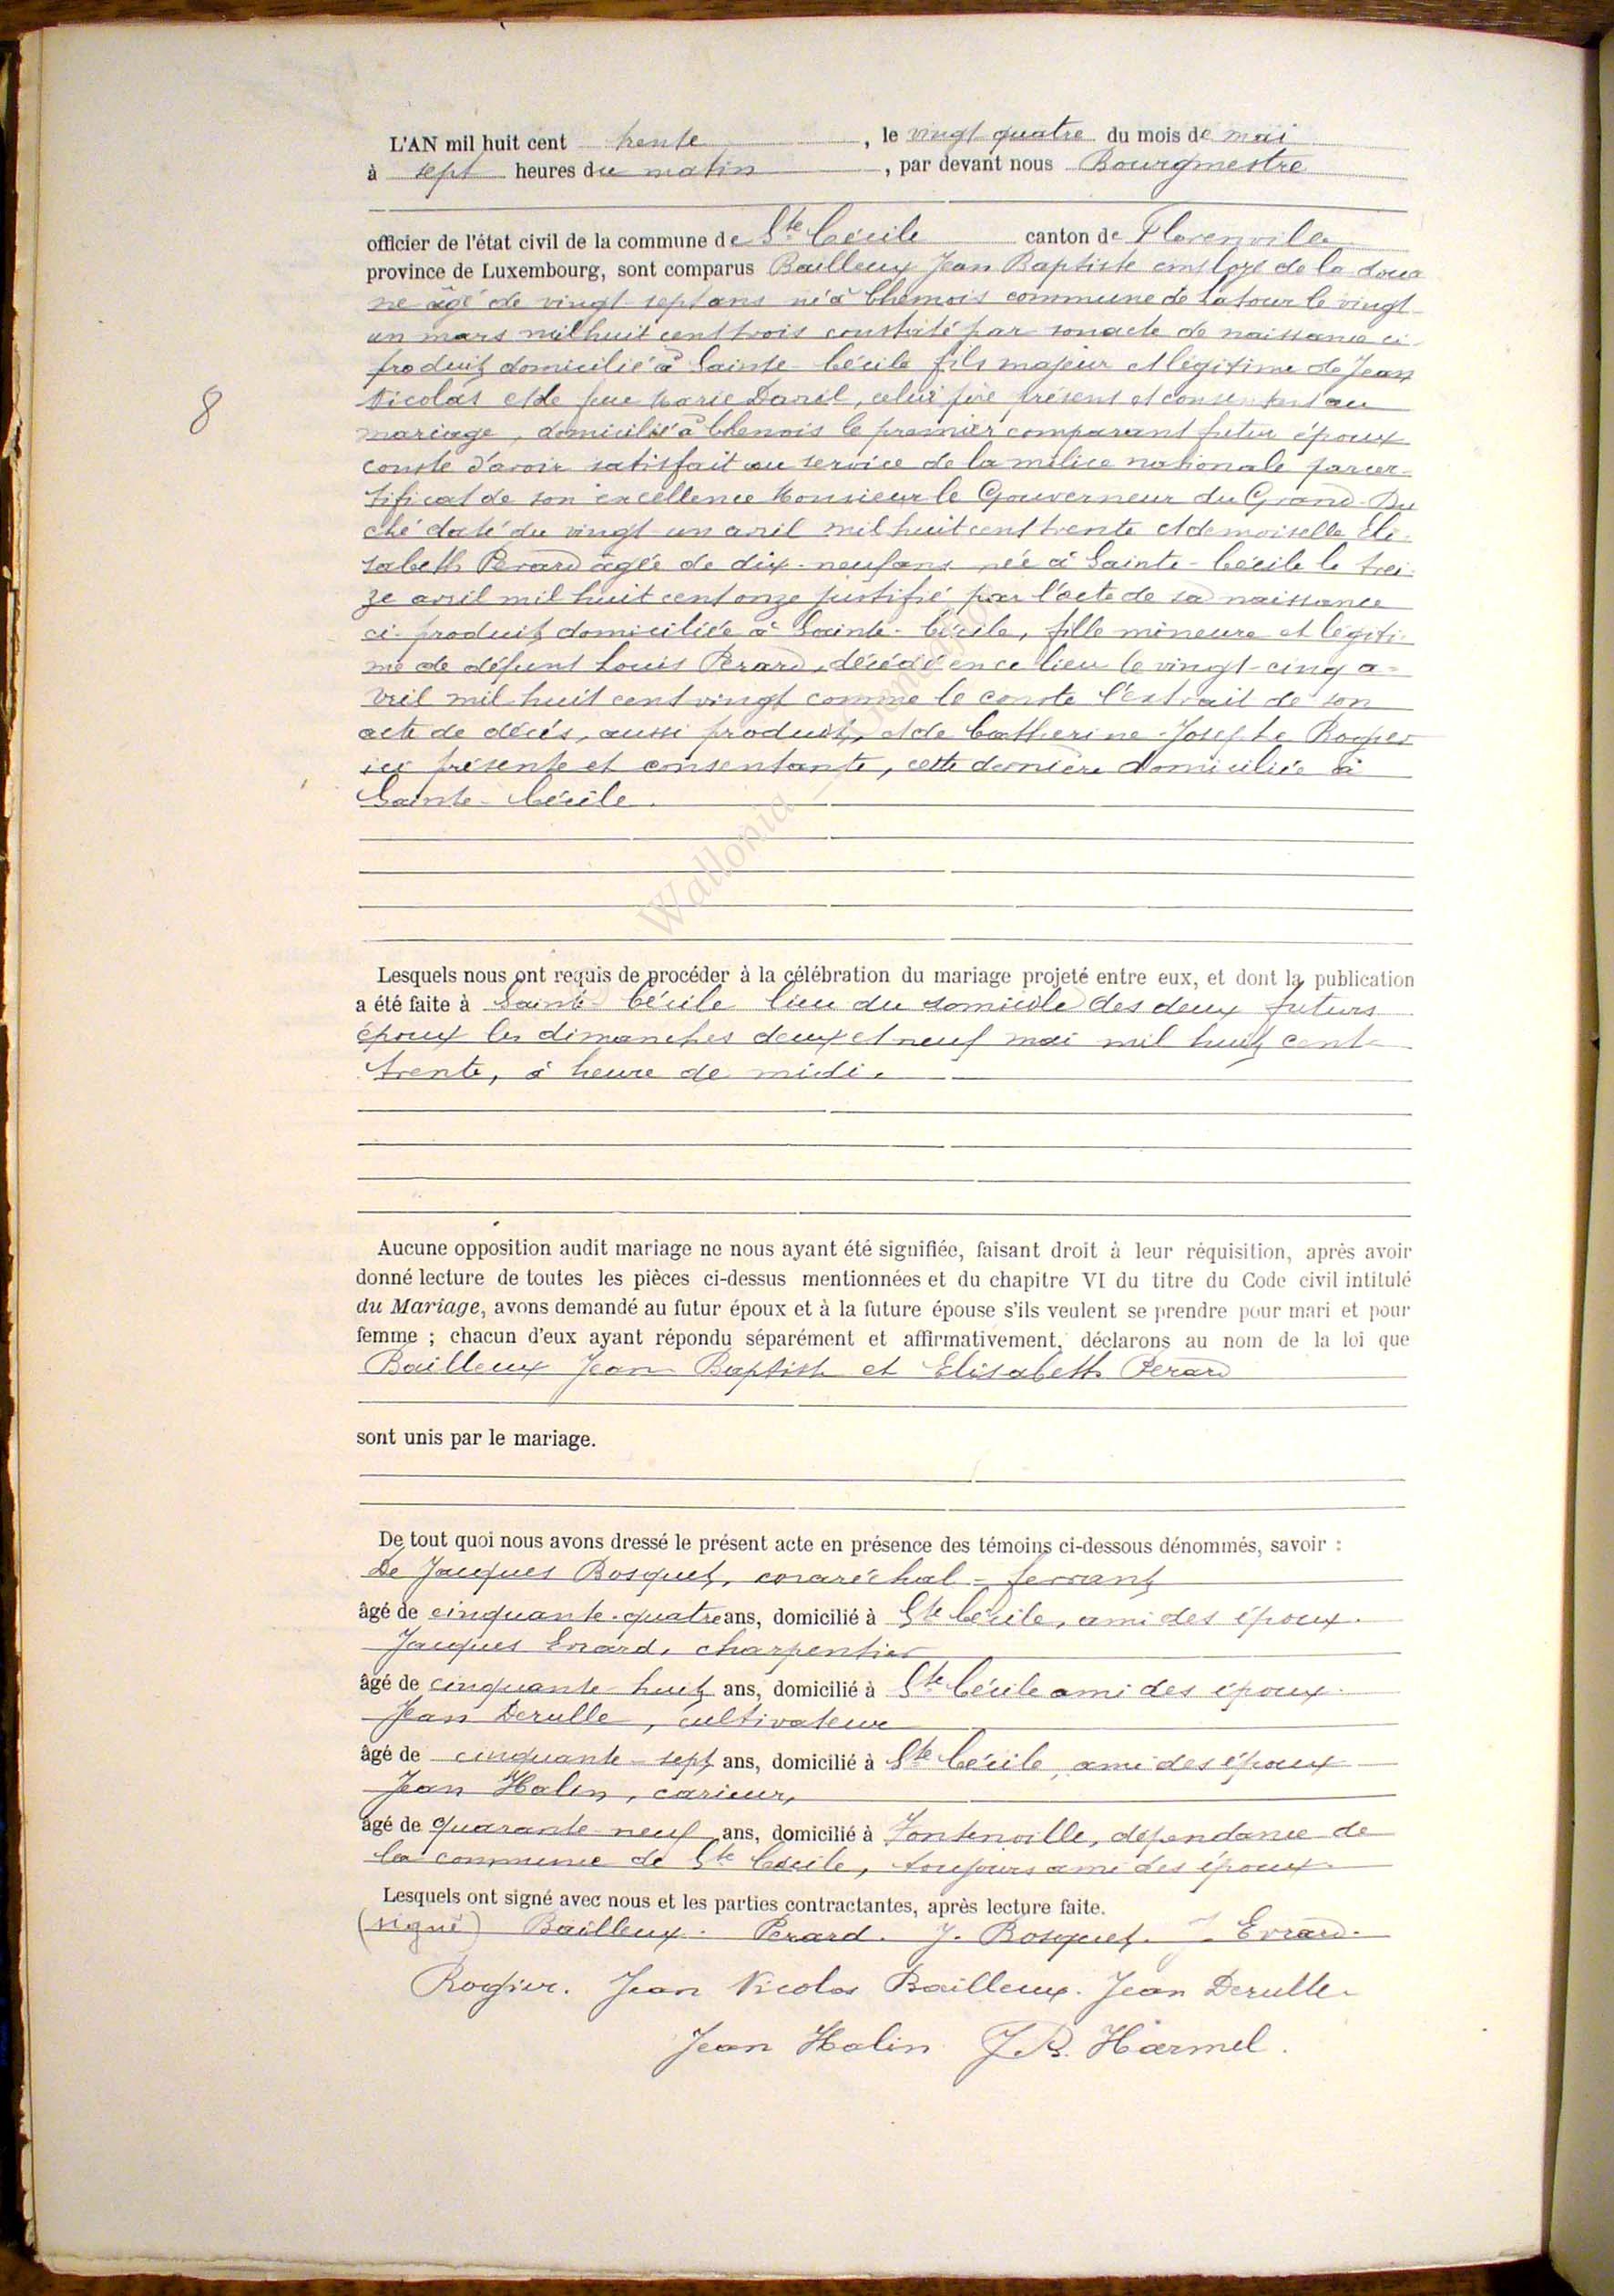 L'AN mil huit cent trente, le vingt quatre du mois de mai
à sept heures du matin, par devant nous Bourgmestre
officier de l'état civil de la commune de Ste Cécile canton de Florenville
province de Luxembourg, sont comparus Bailleux Jean Baptiste employé de la doua
ne âgé de vingt sept ans né à Chenois commune de Latour le vingt
un mars mil huit cent trois constaté par son acte de naissance ci-
produit domicilié à Sainte-Cécile fils majeur et légitime de Jean
8
Nicolas et de feue Marie , celui père présent et consentant au
mariage, domicilié à Chenois le premier comparant futur époux
conste d'avoir satisfait au service de la milice nationale par cer-
tificat de son excellence Monsieur le Gouverneur du Grand-Du
ché daté du vingt-un avril mil huit cent trente et demoiselle Eli-
sabeth Perard âgée de dix-neuf ans née à Sainte-Cécile le trei-
ze avril mil huit cent onze justifié par l'acte de sa naissance
ci-produit domiciliée à Sainte-Cécile, fille mineure et légiti-
me de défunt Louis Perard, décédé en ce lieu le vingt-cinq a-
vril mil huit cent vingt comme le conste l'extrait de son
acte de décès, aussi produit, et de Catherine-Josephe
ici présente et consentante, cette dernière domiciliée à
Sainte-Cécile.
Wallonia
Lesquels nous ont requis de procéder à la célébration du mariage projeté entre eux, et dont la publication
a été faite à Sainte-Cécile lieu du domicile des deux futurs
époux les dimanches deux et neuf mai mil huit cent
trente, à heure de midi.
Aucune opposition audit mariage ne nous ayant été signifiée, faisant droit à leur réquisition, après avoir
donné lecture de toutes les pièces ci-dessus mentionnées et du chapitre VI du titre du Code civil intitulé
du Mariage, avons demandé au futur époux et à la future épouse s'ils veulent se prendre pour mari et pour
femme ; chacun d'eux ayant répondu séparément et affirmativement, déclarons au nom de la loi que
Bailleux Jean Baptiste et Elisabeth Perard
sont unis par le mariage.
De tout quoi nous avons dressé le présent acte en présence des témoins ci-dessous dénommés, savoir :
De Jacques Bosquet, maréchal-ferrant
âgé de cinquante-quatre ans, domicilié à Ste Cécile, ami des époux.
Jacques Evrard, charpentier
âgé de cinquante-huit ans, domicilié à Ste Cécile ami des époux.
Jean Derulle, cultivateur
âgé de cinquante-sept ans, domicilié à Ste Cécile, ami des époux
Jean Halin, carieur,
âgé de quarante neuf ans, domicilié à Fontenoille, dépendance de
la commune de Ste Cécile, toujours ami des époux.
Lesquels ont signé avec nous et les parties contractantes, après lecture faite.
(signé) Bailleux. Perard. J. Bosquet. J. Evrard.
Rogier. Jean Nicolas Bailleux. Jean Derulle.
Jean Halin J.B. Harmel.